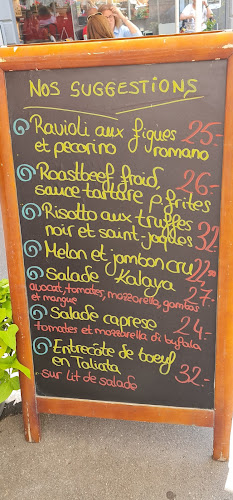 NOS SUGGESTIONS
Ravioli aux figues 25.-
et pecorino romano
Roastbeef froid, 26.-
sauce tartare p. frites
Risotto aux truffes 32.-
noir et saint-jaques
Melon et jambon cru 22.-
Salade Kalaya 27.-
avocat, tomates, mozzorella, gambas
et mangue
Salade caprese 24.-
tomates et mozzarella di bufala
Entrecôte de boeuf 32.-
en Taliata
sur lit de salade